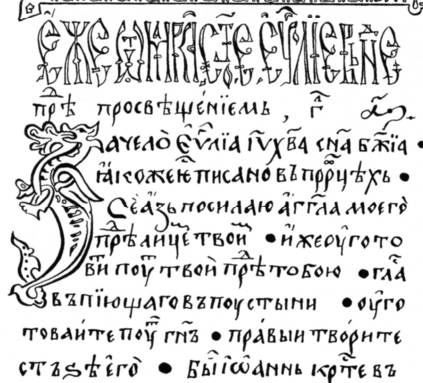 Е́ЖЕ Ѿ СТ҃Е ЕѴ҃ЛЇЕ
прⷣѣ просвѣще́нїемь ,
Зачело̀ еѵ҃лїа і҃у хв҃а сн҃а бж҃їа •
ꙗ́коже є҆ писано въ прⷪрцѣхь •
Се а҆зь посилаю а҆г҃гла моего̀
прⷣѣ лице твои̑ • и҆же оуго то
ви поуⷮ твои̑ прⷣѣ тобою • гла̑
въпїющаго въ поустыни • оуго
товаи́те поуⷮ гн҃ъ • пра́выи тво́рите
стъѕѣ е҆го̀ • бы̑ і҆ѡаннь крⷭте въ